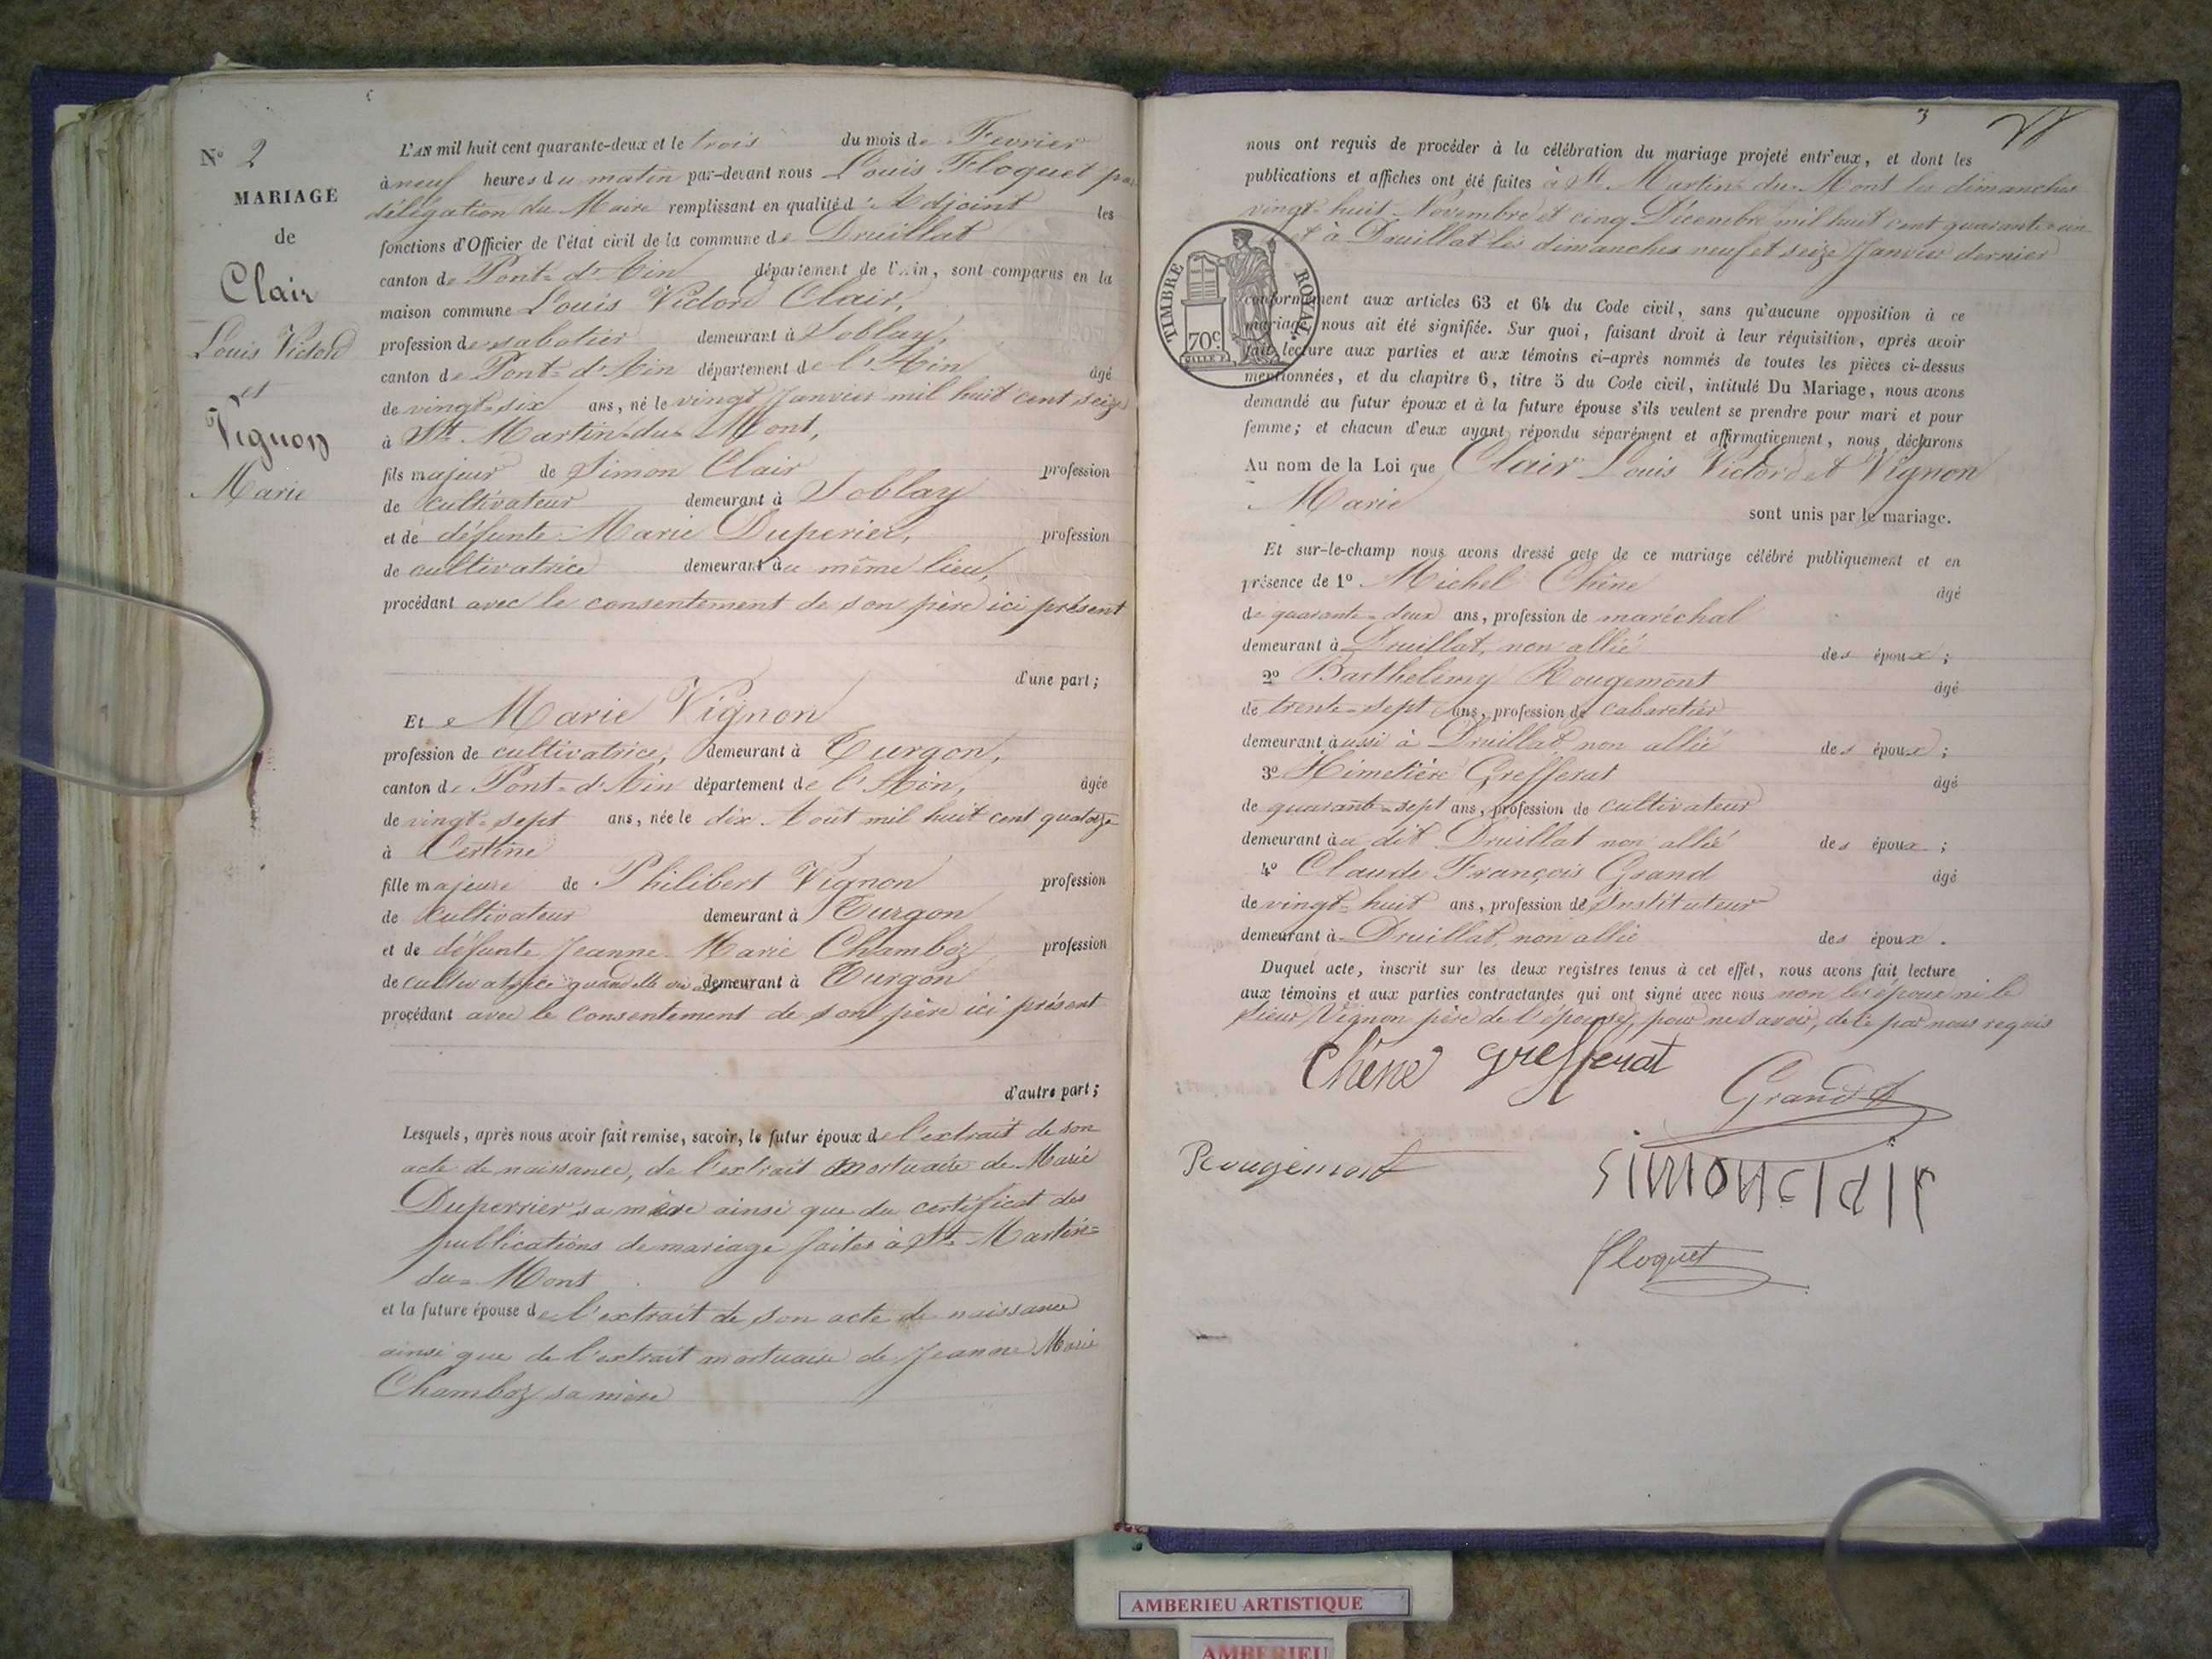 N° 2
MARIAGE
de
Clair
Louis Victord
et
Vignon
Marie
L'AN mil huit cent quarante-deux et le trois du mois de Fevrier
à neuf heures du matin par-devant nous Louis Floquet par
délégation du Maire remplissant en qualité d'Adjoint les
fonctions d'Officier de l'état civil de la commune de Druillat
canton de Pont-d'Ain département de l'Ain, sont comparus en la
maison commune Louis Victord Clair,
profession de sabotier demeurant à Soblay,
canton de Pont-d'Ain département de l'Ain âgé
de vingt-six ans, né le vingt Janvier mil huit cent seize
à St Martin-du-Mont,
fils majeur de Simon Clair profession
de cultivateur demeurant à Soblay
et de défunte Marie Duperier, profession
de cultivatrice demeurant au même lieu,
procédant avec le consentement de son père ici présent
d'une part;
Et Marie Vignon
profession de cultivatrice, demeurant à Turgon,
canton de Pont-d'Ain département de l'Ain, âgée
de vingt-sept ans, née le dix Août mil huit cent quatorze
à Certine
fille majeure de Philibert Vignon profession
de cultivateur demeurant à Turgon
et de défunte Jeanne Marie Chamboz, profession
de cultivatrice quand elle demeurant à Turgon
procédant avec le consentement de son père ici présent
d'autre part;
Lesquels, après nous avoir fait remise, savoir, le futur époux de l'extrait de son
acte de naissance, de l'extrait mortuaire de Marie
Duperrier sa mère ainsi que du certificat des
publications de mariage faites à St Martin-
du-Mont
et la future épouse de l'extrait de son acte de naissance
ainsi que de l'extrait mortuaire de Jeanne Marie
Chamboz sa mère
3
nous ont requis de procéder à la célébration du mariage projeté entr'eux, et dont les
publications et affiches ont été faites à St Martin-du-Mont les dimanches
vingt-huit Novembre et cinq Décembre mil huit cent quarante-un
et à Druillat les dimanches neuf et seize Janvier dernier
TIMBRE ROYAL.
70c
conformément aux articles 63 et 64 du Code civil, sans qu'aucune opposition à ce
mariage nous ait été signifiée. Sur quoi, faisant droit à leur réquisition, après avoir
fait lecture aux parties et aux témoins ci-après nommés de toutes les pièces ci-dessus
mentionnées, et du chapitre 6, titre 5 du Code civil, intitulé Du Mariage, nous avons
demandé au futur époux et à la future épouse s'ils veulent se prendre pour mari et pour
femme; et chacun d'eux ayant répondu séparément et affirmativement, nous déclarons
Au nom de la Loi que Clair Louis Victord et Vignon
Marie
sont unis par le mariage.
Et sur-le-champ nous avons dressé acte de ce mariage célébré publiquement et en
présence de 1° Michel Chêne âgé
de quarante-deux ans, profession de maréchal
demeurant à Druillat, non allié des époux;
2° Barthelimy Rougemont âgé
de trente-sept ans, profession de cabaretier
demeurant aussi à Druillat non allié des époux;
3° Himetière Grefferat âgé
de quarante-sept ans, profession de cultivateur
demeurant au dit Druillat non allié des époux;
4° Claude François Grand âgé
de vingt-huit ans, profession de Instituteur
demeurant à Druillat, non allié des époux.
Duquel acte, inscrit sur les deux registres tenus à cet effet, nous avons fait lecture
aux témoins et aux parties contractantes qui ont signé avec nous non les époux ni le
sieur Vignon père de l'épouse, pour ne savoir, de ce par nous requis
Chêne Grefferat
Grand
Rougemont
simonclair
Floquet
AMBERIEU ARTISTIQUE
AMBERIEU